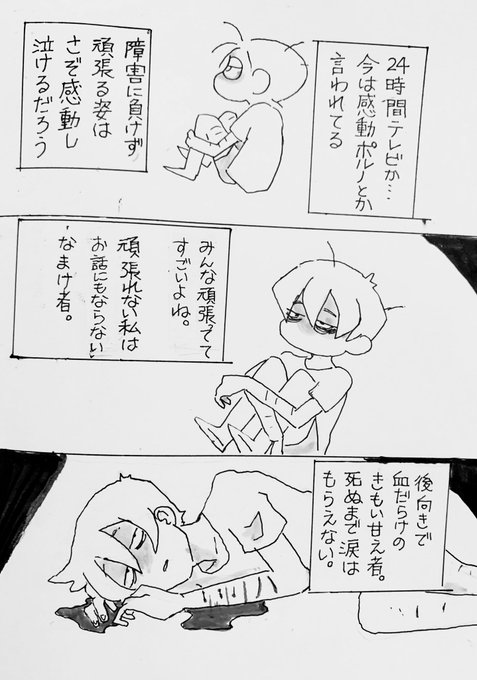 24時間テレビか…
今は感動ポルノとか
言われてる
障害に負けず
頑張る姿は
さぞ感動し
泣けるだろう
みんな頑張ってて
すごいよね。
頑張れない私は
お話にもならない
なまけ者。
後向きで
血だらけの
きもい甘え者。
死ぬまで涙は
もらえない。